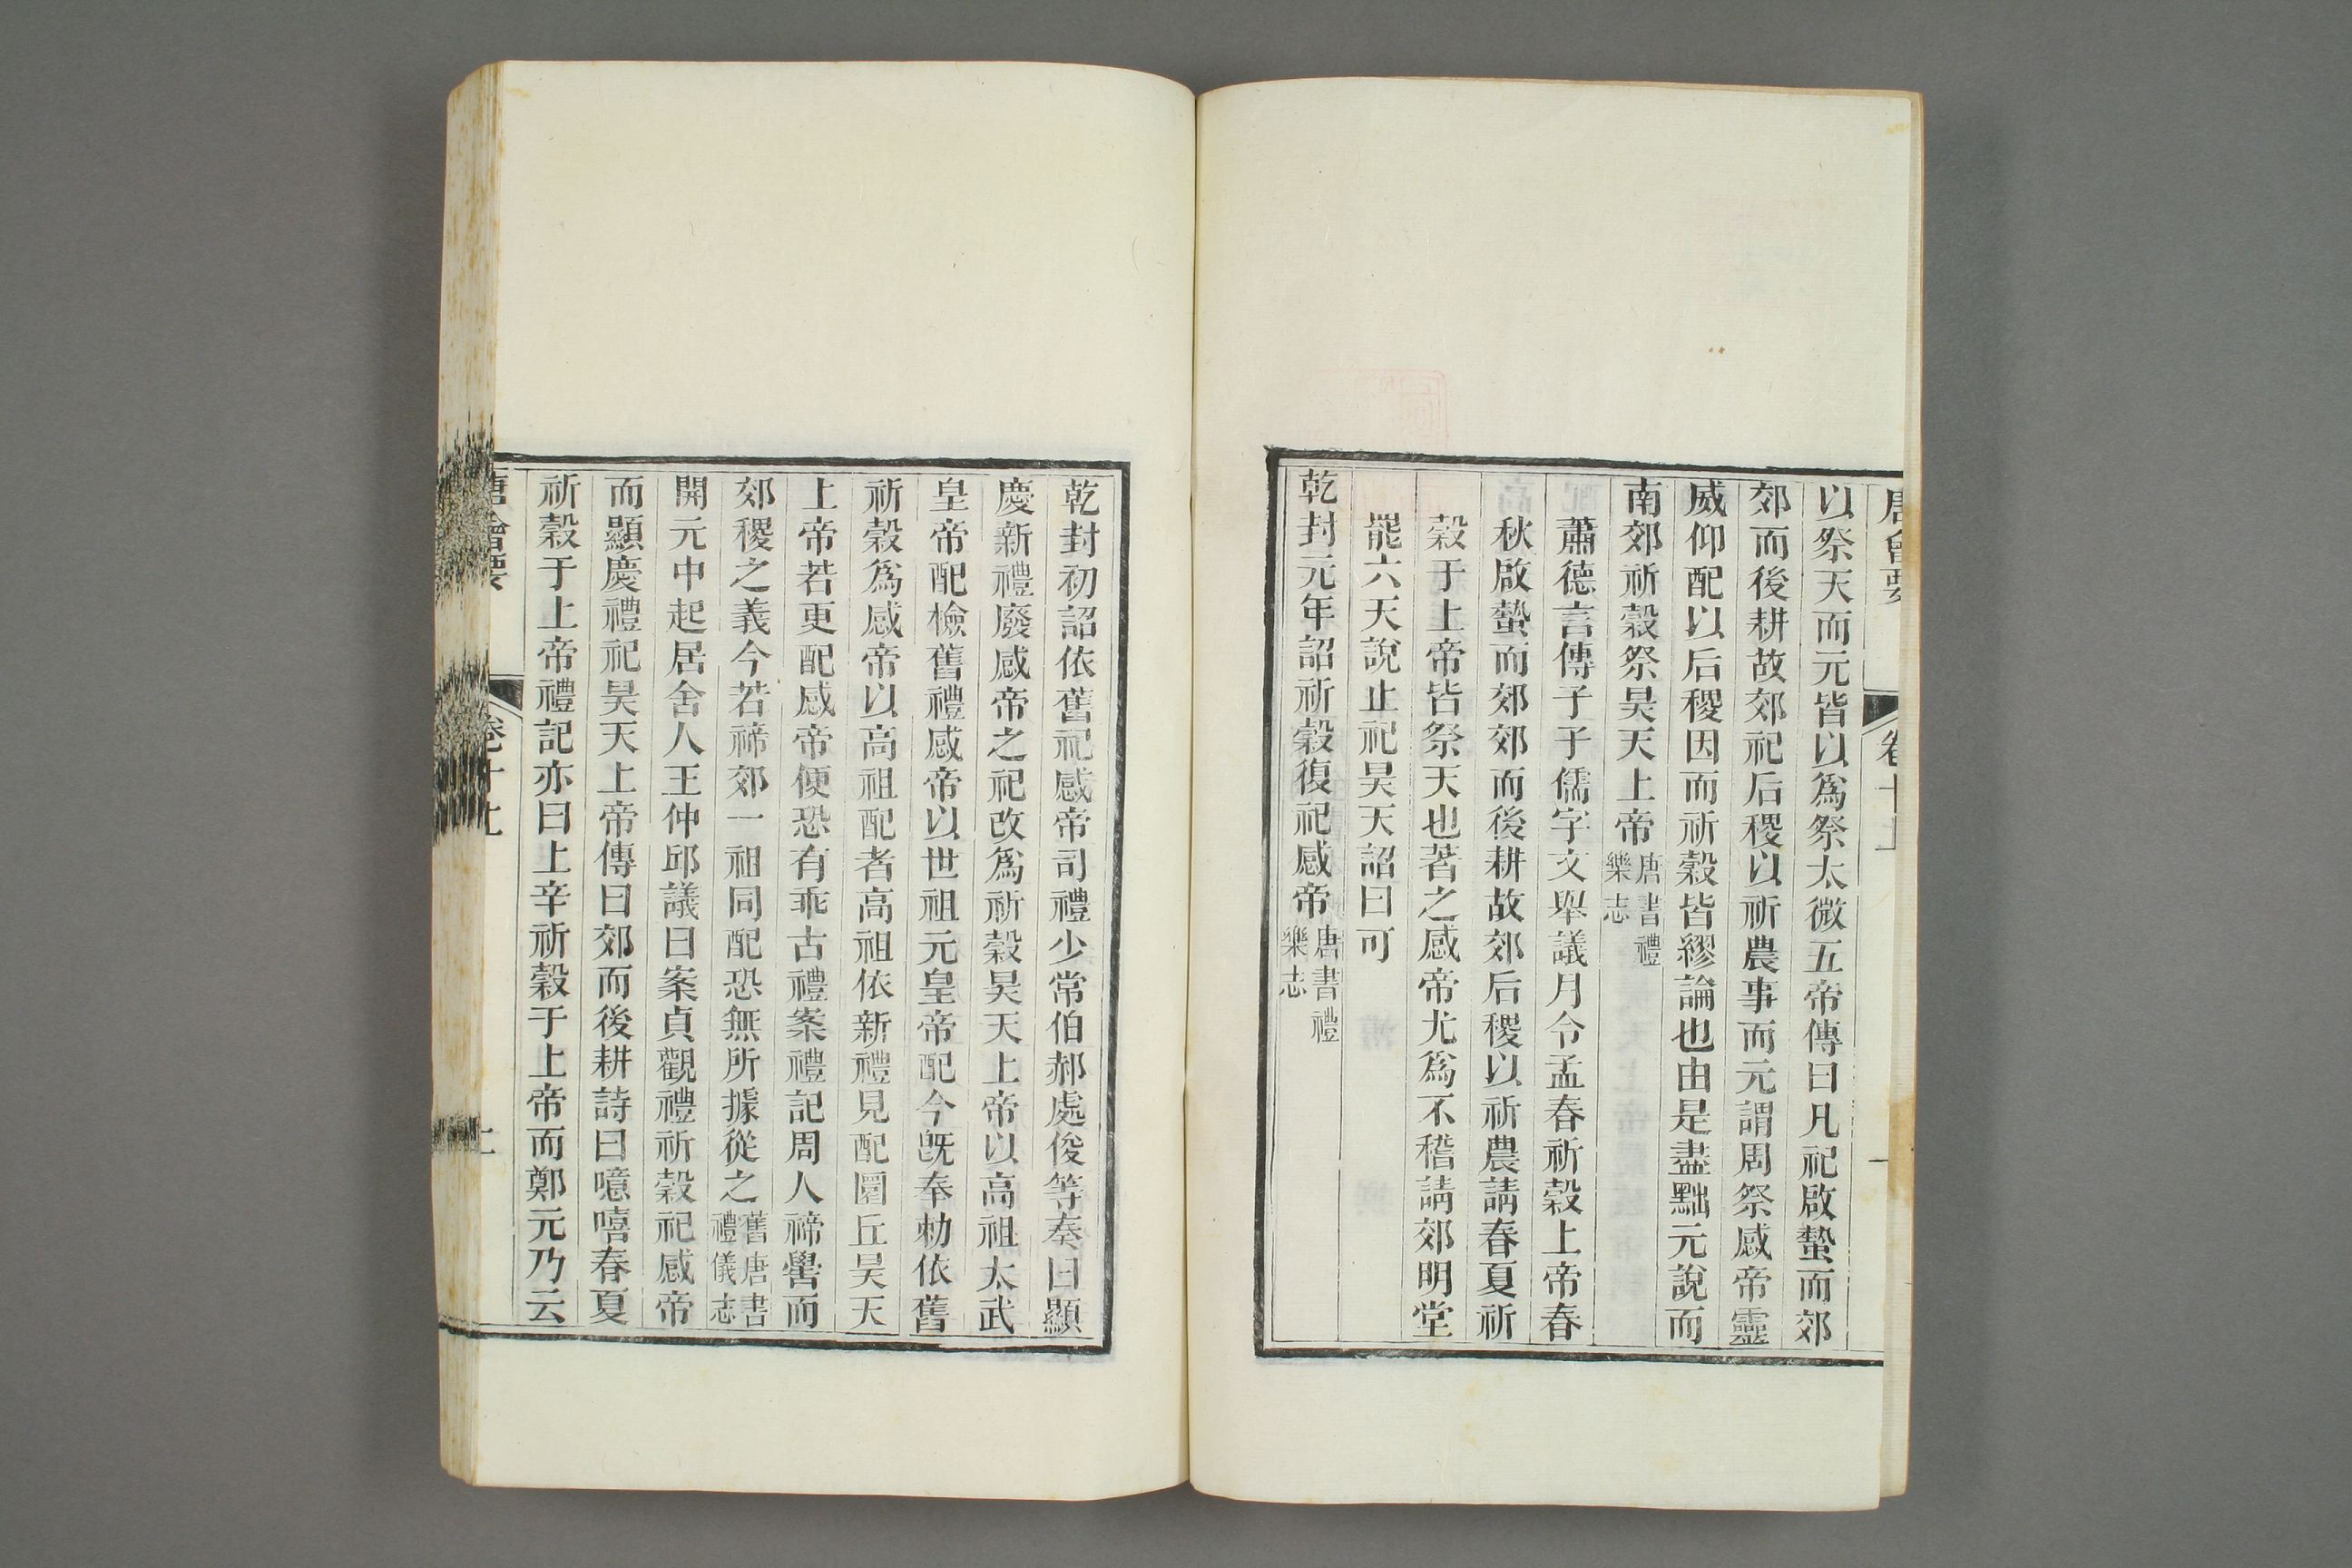 唐會要
卷十
以祭天而元皆以爲祭太微五帝傳曰凡祀啟蟄而郊
郊而後耕故郊祀后稷以祈農事而元謂周祭感帝靈
威仰配以后稷因而祈穀皆繆論也由是盡黜元說而
南郊祈穀祭昊天上帝唐書禮樂志
蕭德言傳子子儒字文舉議月令孟春祈穀上帝春
秋啟蟄而郊郊而後耕故郊后稷以祈農請春夏祈
穀于上帝皆祭天也著之感帝尤爲不稽請郊明堂
罷六天說止祀昊天詔曰可
乾封元年詔祈穀復祀感帝唐書禮樂志
乾封初詔依舊祀感帝司禮少常伯郝處俊等奏曰顯
慶新禮廢感帝之祀改爲祈穀昊天上帝以高祖太武
皇帝配檢舊禮感帝以世祖元皇帝配今既奉勅依舊
祈穀爲感帝以高祖配者高祖依新禮見配圜丘昊天
上帝若更配感帝便恐有乖古禮案禮記周人禘嚳而
郊稷之義今若禘郊一祖同配恐無所據從之舊唐書禮儀志
開元中起居舍人王仲邱議曰案貞觀禮祈穀祀感帝
而顯慶禮祀昊天上帝傳曰郊而後耕詩曰噫嘻春夏
祈穀于上帝禮記亦曰上辛祈穀于上帝而鄭元乃云
唐會要
卷十